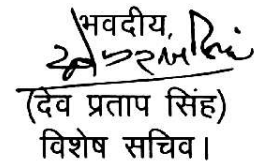 भवदीय,
(देव प्रताप सिंह)
विशेष सचिव।